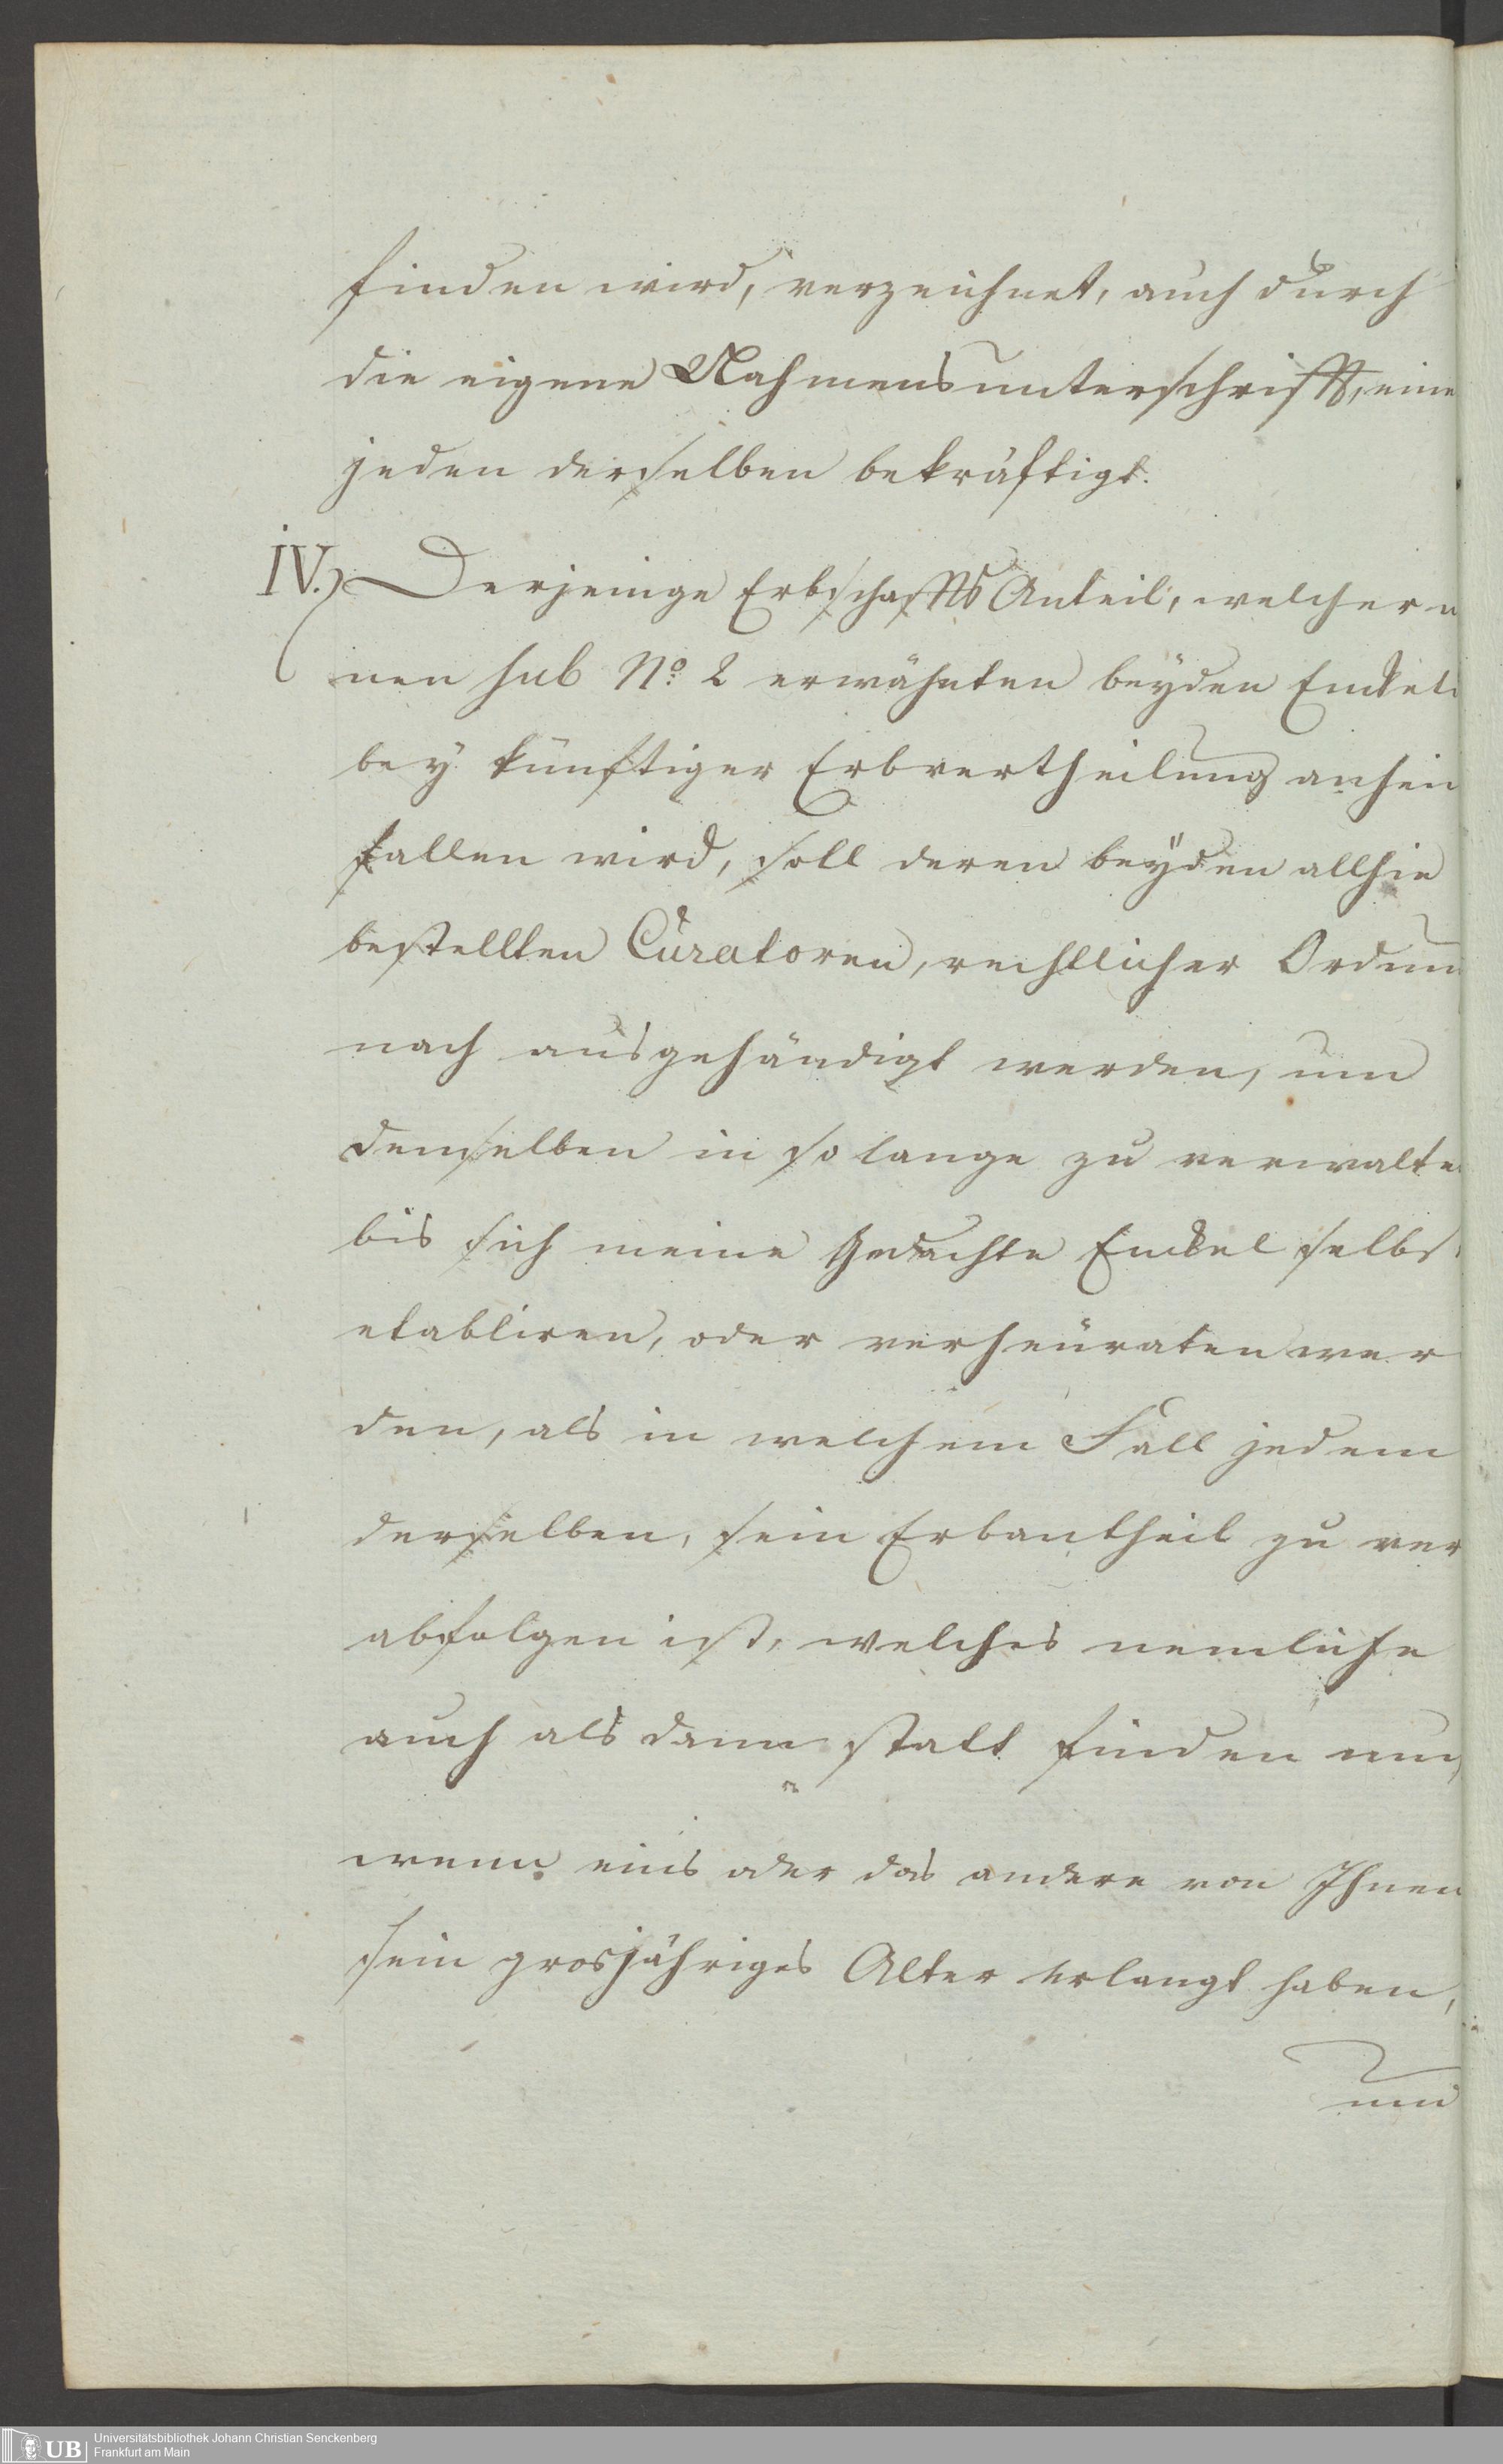 finden wird, verzeichnet, auch durch
die eigene Nahmensunterschrifft, eine
jeden derselben bekräftigt.
IV.) Derjenige Erbschaffts Anteil, welcher
nen sub No. 2 erwähnten beyden Enckel
bey künftiger Erbvertheilung anheim
fallen wird, soll deren beyden allhie
bestellten Curatoren, rechtlicher Ordnun
nach ausgehändigt werden, um
denselben in so lange zu verwalte
bis sich meine Gedachte Enckel selbs
etabliren, oder verheuraten wer
den, als in welchem Fall jedem
derselben, sein Erbantheil zu ver
abfolgen ist, welches nemliche
auch als dann statt finden mus
wenn eins oder das andere von Ihnen
sein grosjähriges Alter erlangt haben,
und
UB Universitätsbibliothek Johann Christian Senckenberg
Frankfurt am Main